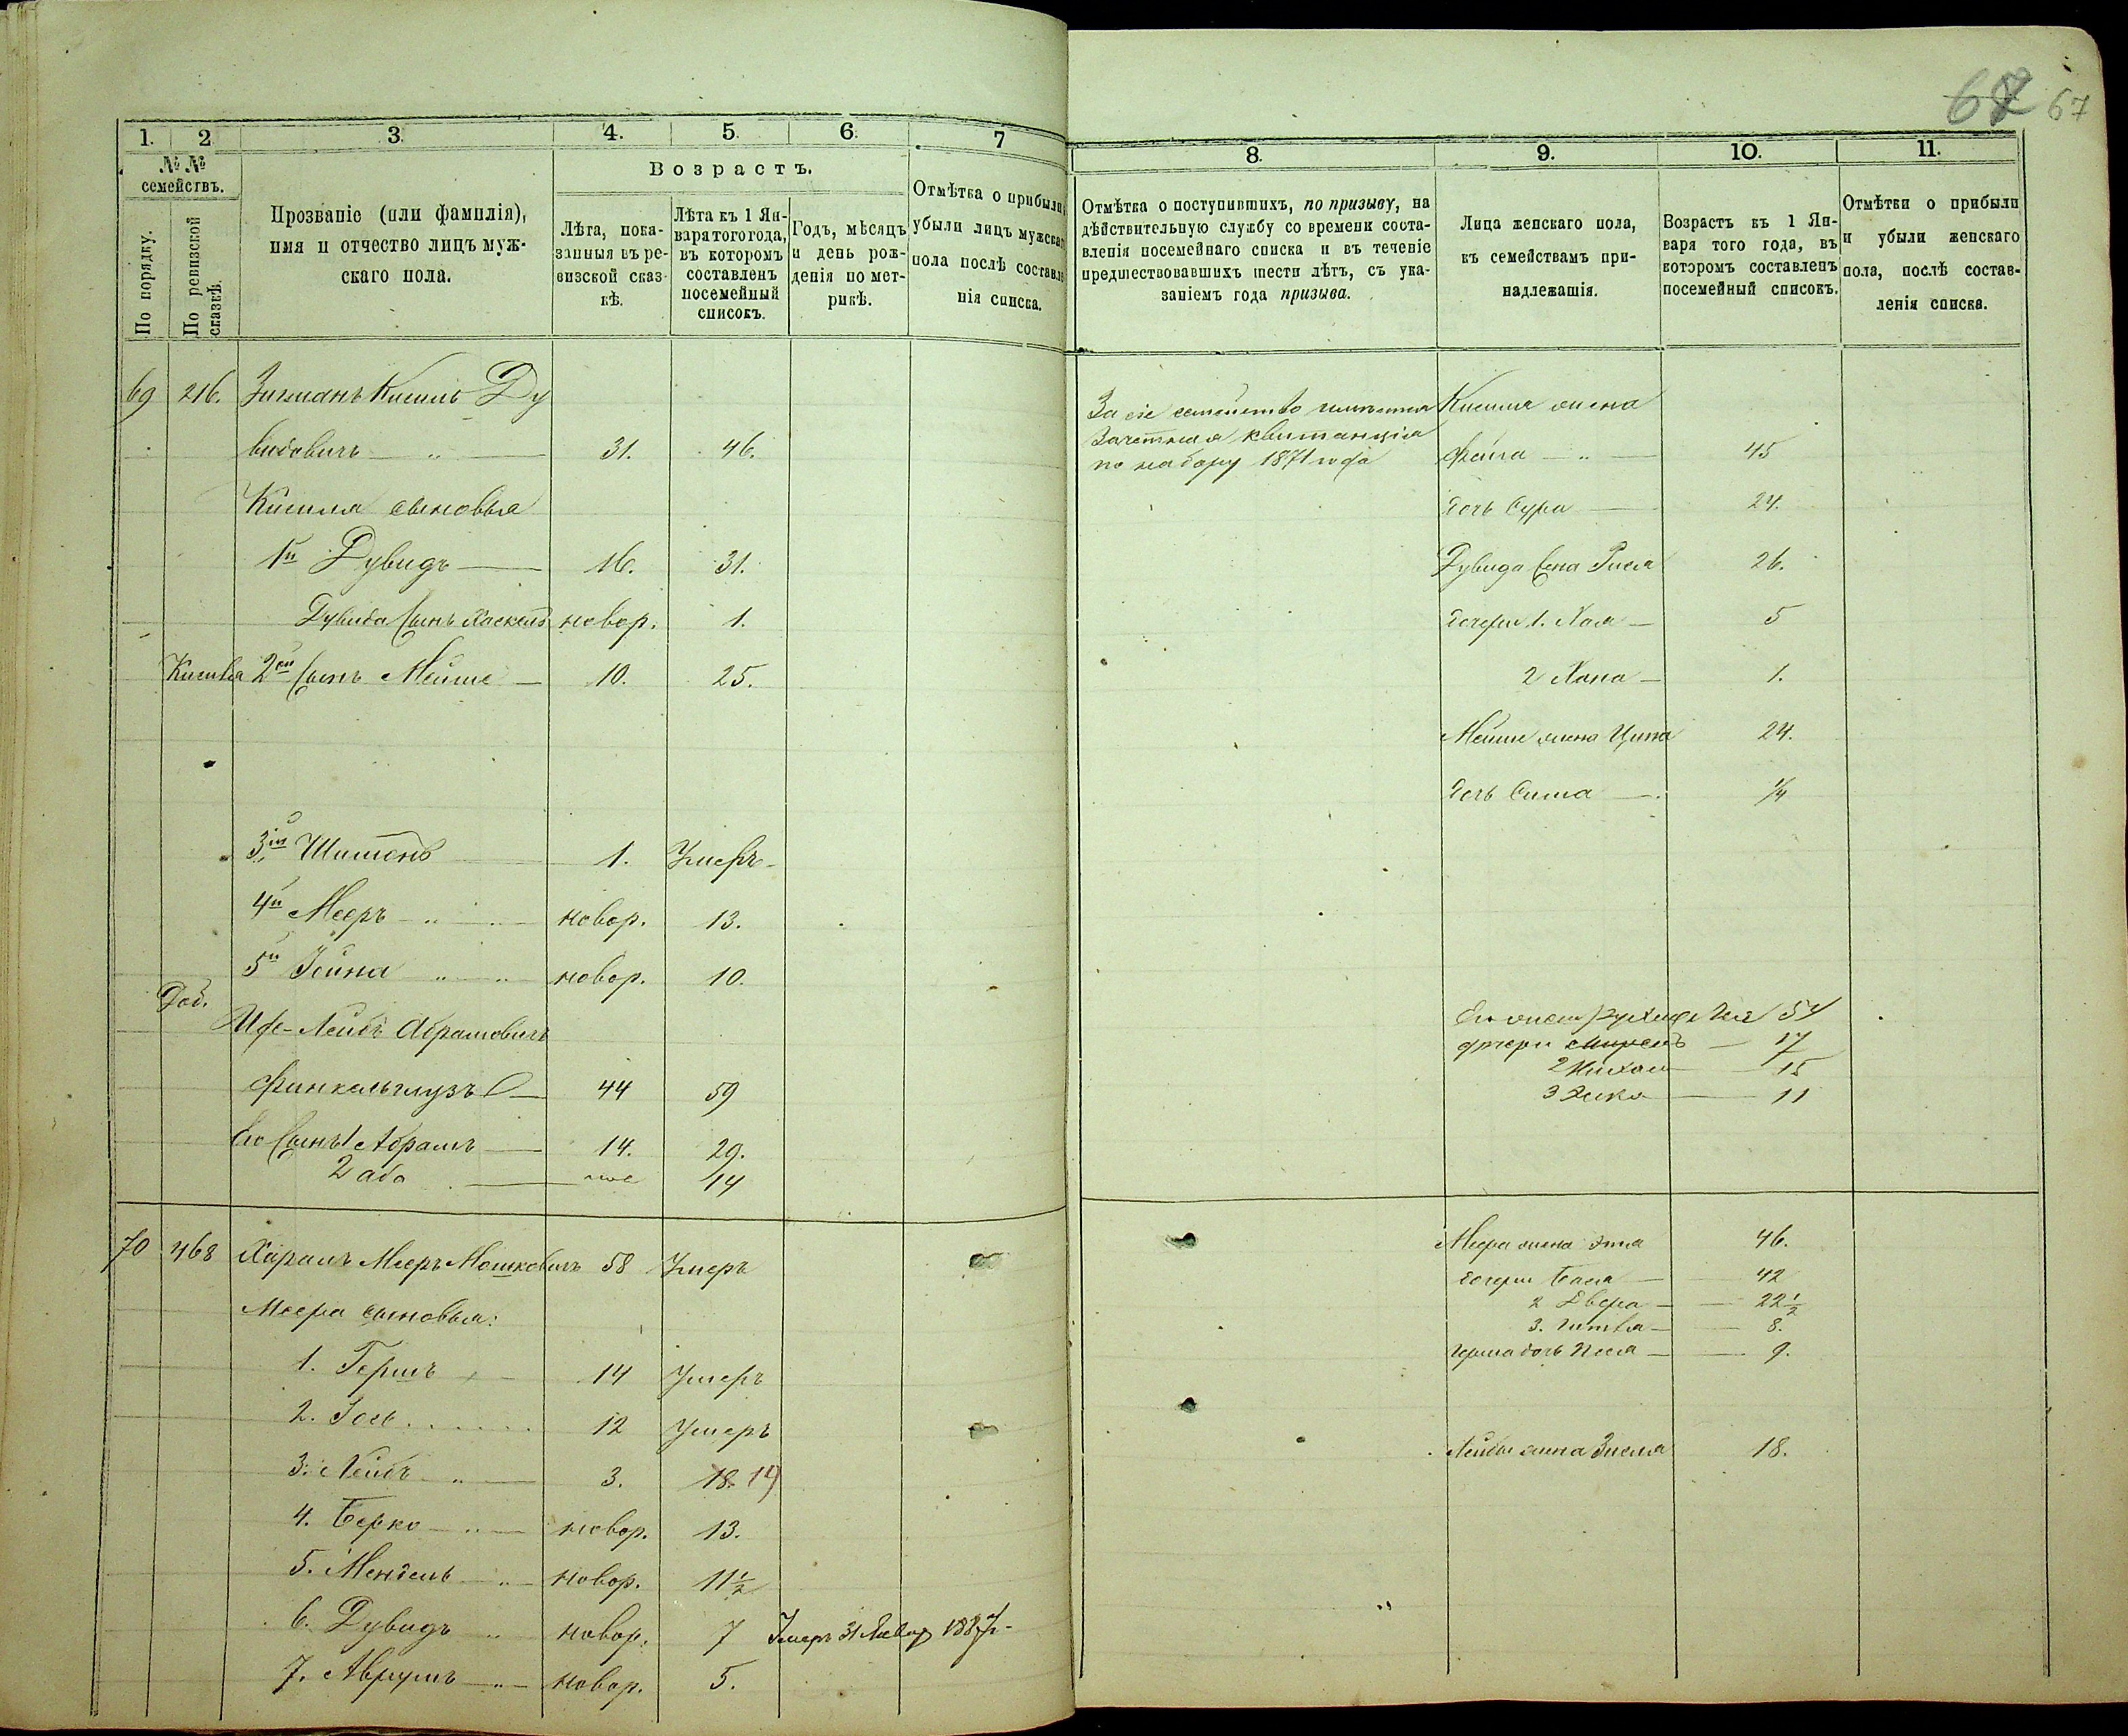 68 67
1. 2 3. 4. 5. 6. 7
№ №
семействъ.
По порядку.
По ревизской
сказкѣ.
Прозваніе (или фамилія),
имя и отчество лицъ муж-
скаго пола.
Возрастъ.
Лѣта, пока-
занныя въ ре-
визской сказ-
кѣ.
Лѣта къ 1 Ян-
варя того года,
въ которомъ
составленъ
посемейный
списокъ.
Годъ, мѣсяцъ
и день рож-
денія по мет-
рикѣ.
Отмѣтка о прибыли
убыли лицъ мужскаг
пола послѣ составле
нія списка.
8. 9. 10. 11.
Отмѣтка о поступившихъ, по призыву, на
дѣйствительную службу со времени соста-
вленія посемейнаго списка и въ теченіе
предшествовавшихъ шести лѣтъ, съ ука-
заніемъ года призыва.
Лица женскаго пола,
къ семействамъ при-
надлежащія.
Возрастъ къ 1 Ян-
варя того года, въ
которомъ составленъ
посемейный списокъ.
Отмѣтки о прибыли
и убыли женскаго
пола, послѣ состав-
ленія списка.
69 216. Зигманъ Кисиль Ду
видовичъ — " — 31. 46.
Кисиля сыновья
1й Дувидъ — 16. 31.
Дувида Сынъ Хаскель новор. 1.
Кисиля 2ой Сынъ Мейше — 10. 25.
3ій Шимонъ 1. Умеръ
4й Мееръ — " — новор. 13.
5й Іойна " — " новор. 10.
Доб.
Лейбъ Абрамовичъ
Финкельглузъ — 44 59
Его Сынъ 1 Абрамъ — 14. 29.
2 Аба — 14
За сіе семейство имѣется
зачетная квитанція
по набору 1871 года
Кисиля жена
Фейга — " — 45
дочь Сура — 24.
Дувида жена Рися 26.
дочери 1. Хая — 5
2 Хана — 1.
Мейше жена Ципа 24.
дочь Сима — 1/4
Его жена 54
дочери 17
2 15
3 11
70 468 Харашъ Мееръ Мошковичъ 58 Умеръ
Меера сыновья:
1. Гершъ — 14 Умеръ
2. Іось 12 Умеръ
3. Лейбъ — " — 3. 18. 19
4. Берко — " — новор. 13.
5. Мендель — " — новор. 11 1/2
6. Дувидъ " новор. 7 Умеръ 31 Январ 1887
7. Аврумъ — " — новор. 5.
Меера жена Этя 46.
дочери Бася — 42
2 Двера — 22 1/2
3. Гитля — 8.
Герша дочь Песя — 9.
Лейбы жена Зисля 18.